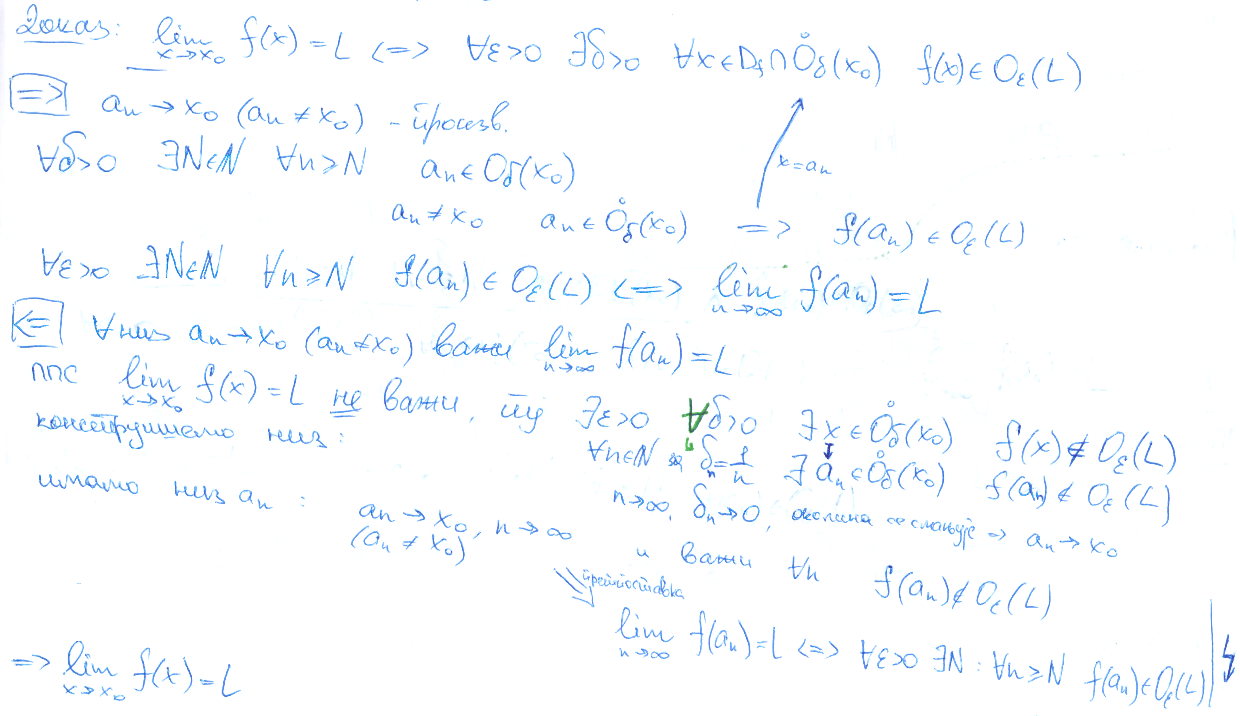 Доказ: lim_{x→x₀} f(x) = L <=> ∀ε>0 ∃δ>0 ∀x∈D_f∩O̊_δ(x₀) f(x)∈O_ε(L)
=> a_n → x₀ (a_n ≠ x₀) - произв.
∀δ>0 ∃N∈ℕ ∀n≥N a_n∈O_δ(x₀)
x=a_n
a_n ≠ x₀ a_n∈O̊_δ(x₀) => f(a_n)∈O_ε(L)
∀ε>0 ∃N∈ℕ ∀n≥N f(a_n)∈O_ε(L) <=> lim_{n→∞} f(a_n) = L
<= ∀низ a_n→x₀ (a_n≠x₀) важи lim_{n→∞} f(a_n) = L
ппс lim_{x→x₀} f(x) = L не важи, тј ∃ε>0 ∀δ>0 ∃x∈O̊_δ(x₀) f(x)∉O_ε(L)
конструишемо низ: ∀n∈ℕ за δ_n=1/n ∃a_n∈O̊_δ(x₀) f(a_n)∉O_ε(L)
n→∞, δ_n→0, околина се смањује => a_n→x₀
имамо низ a_n: a_n→x₀, n→∞
(a_n ≠ x₀)
и важи ∀n f(a_n)∉O_ε(L)
претпоставка
lim_{n→∞} f(a_n)=L <=> ∀ε>0 ∃N: ∀n≥N f(a_n)∈O_ε(L)
=> lim_{x→x₀} f(x) = L